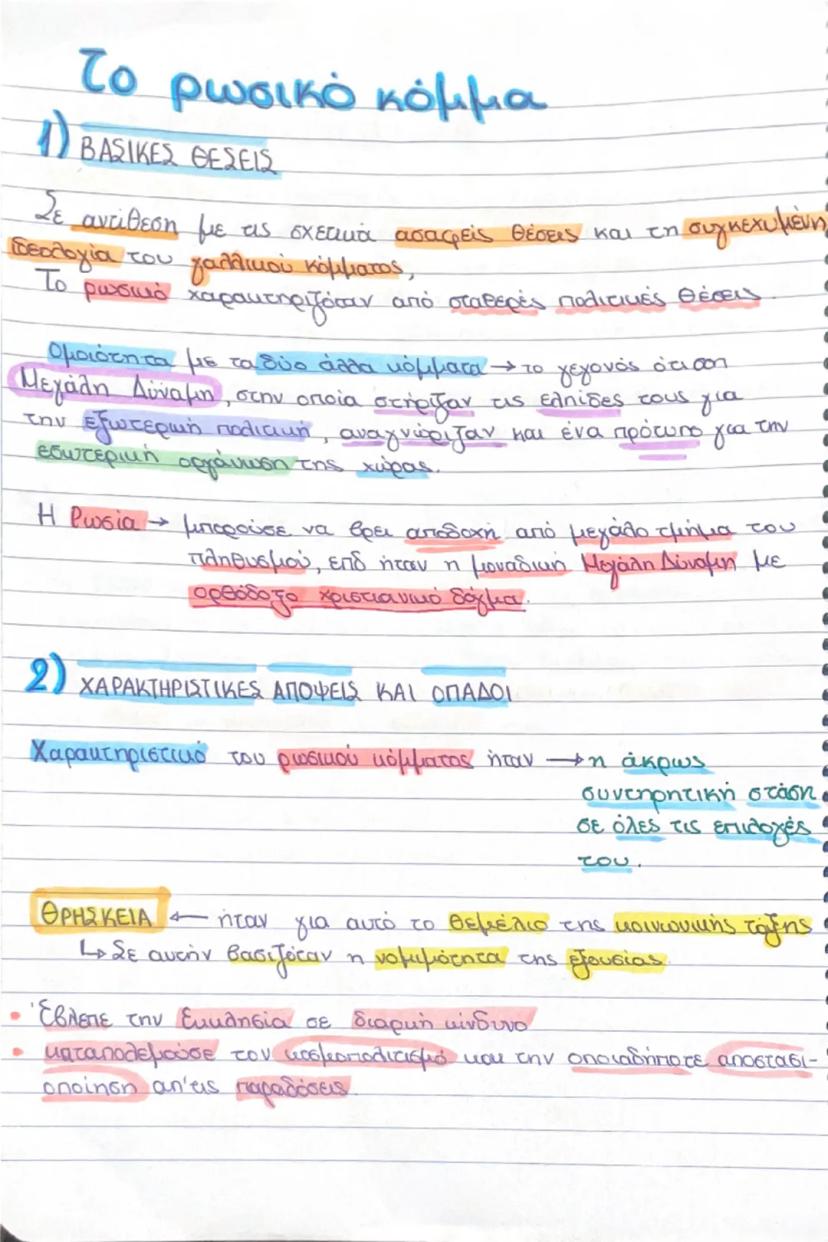 Το ρωσικό κόμμα
1) ΒΑΣΙΚΕΣ ΘΕΣΕΙΣ
Σε αντίθεση με τις σχετικά ασαφείς θέσεις και τη συγκεχυμένη
ιδεολογία του γαλλικού κόμματος,
Το ρωσικό χαρακτηριζόταν από σταθερές πολιτικές θέσεις.
Ομοιότητα με τα δύο άλλα κόμματα → το γεγονός ότι στη
Μεγάλη Δύναμη, στην οποία στήριζαν τις ελπίδες τους για
την εξωτερική πολιτική, αναγνώριζαν και ένα πρότυπο για την
εσωτερική οργάνωση της χώρας.
Η Ρωσία → μπορούσε να βρει αποδοχή από μεγάλο τμήμα του
πληθυσμού, επδ ήταν η μοναδική Μεγάλη Δύναμη με
ορθόδοξο χριστιανικό δόγμα.
2) ΧΑΡΑΚΤΗΡΙΣΤΙΚΕΣ ΑΠΟΨΕΙΣ ΚΑΙ ΟΠΑΔΟΙ
Χαρακτηριστικό του ρωσικού κόμματος ήταν → η άκρως
συντηρητική στάση
σε όλες τις επιλογές
του.
ΘΡΗΣΚΕΙΑ ← ήταν για αυτό το θεμέλιο της κοινωνικής τάξης
↳ Σε αυτήν βασιζόταν η νομιμότητα της εξουσίας.
• Έβλεπε την Εκκλησία σε διαρκή κίνδυνο
• καταπολεμούσε τον κοσμοπολιτισμό και την οποιαδήποτε αποστασι-
οποίηση απ'τις παραδόσεις.